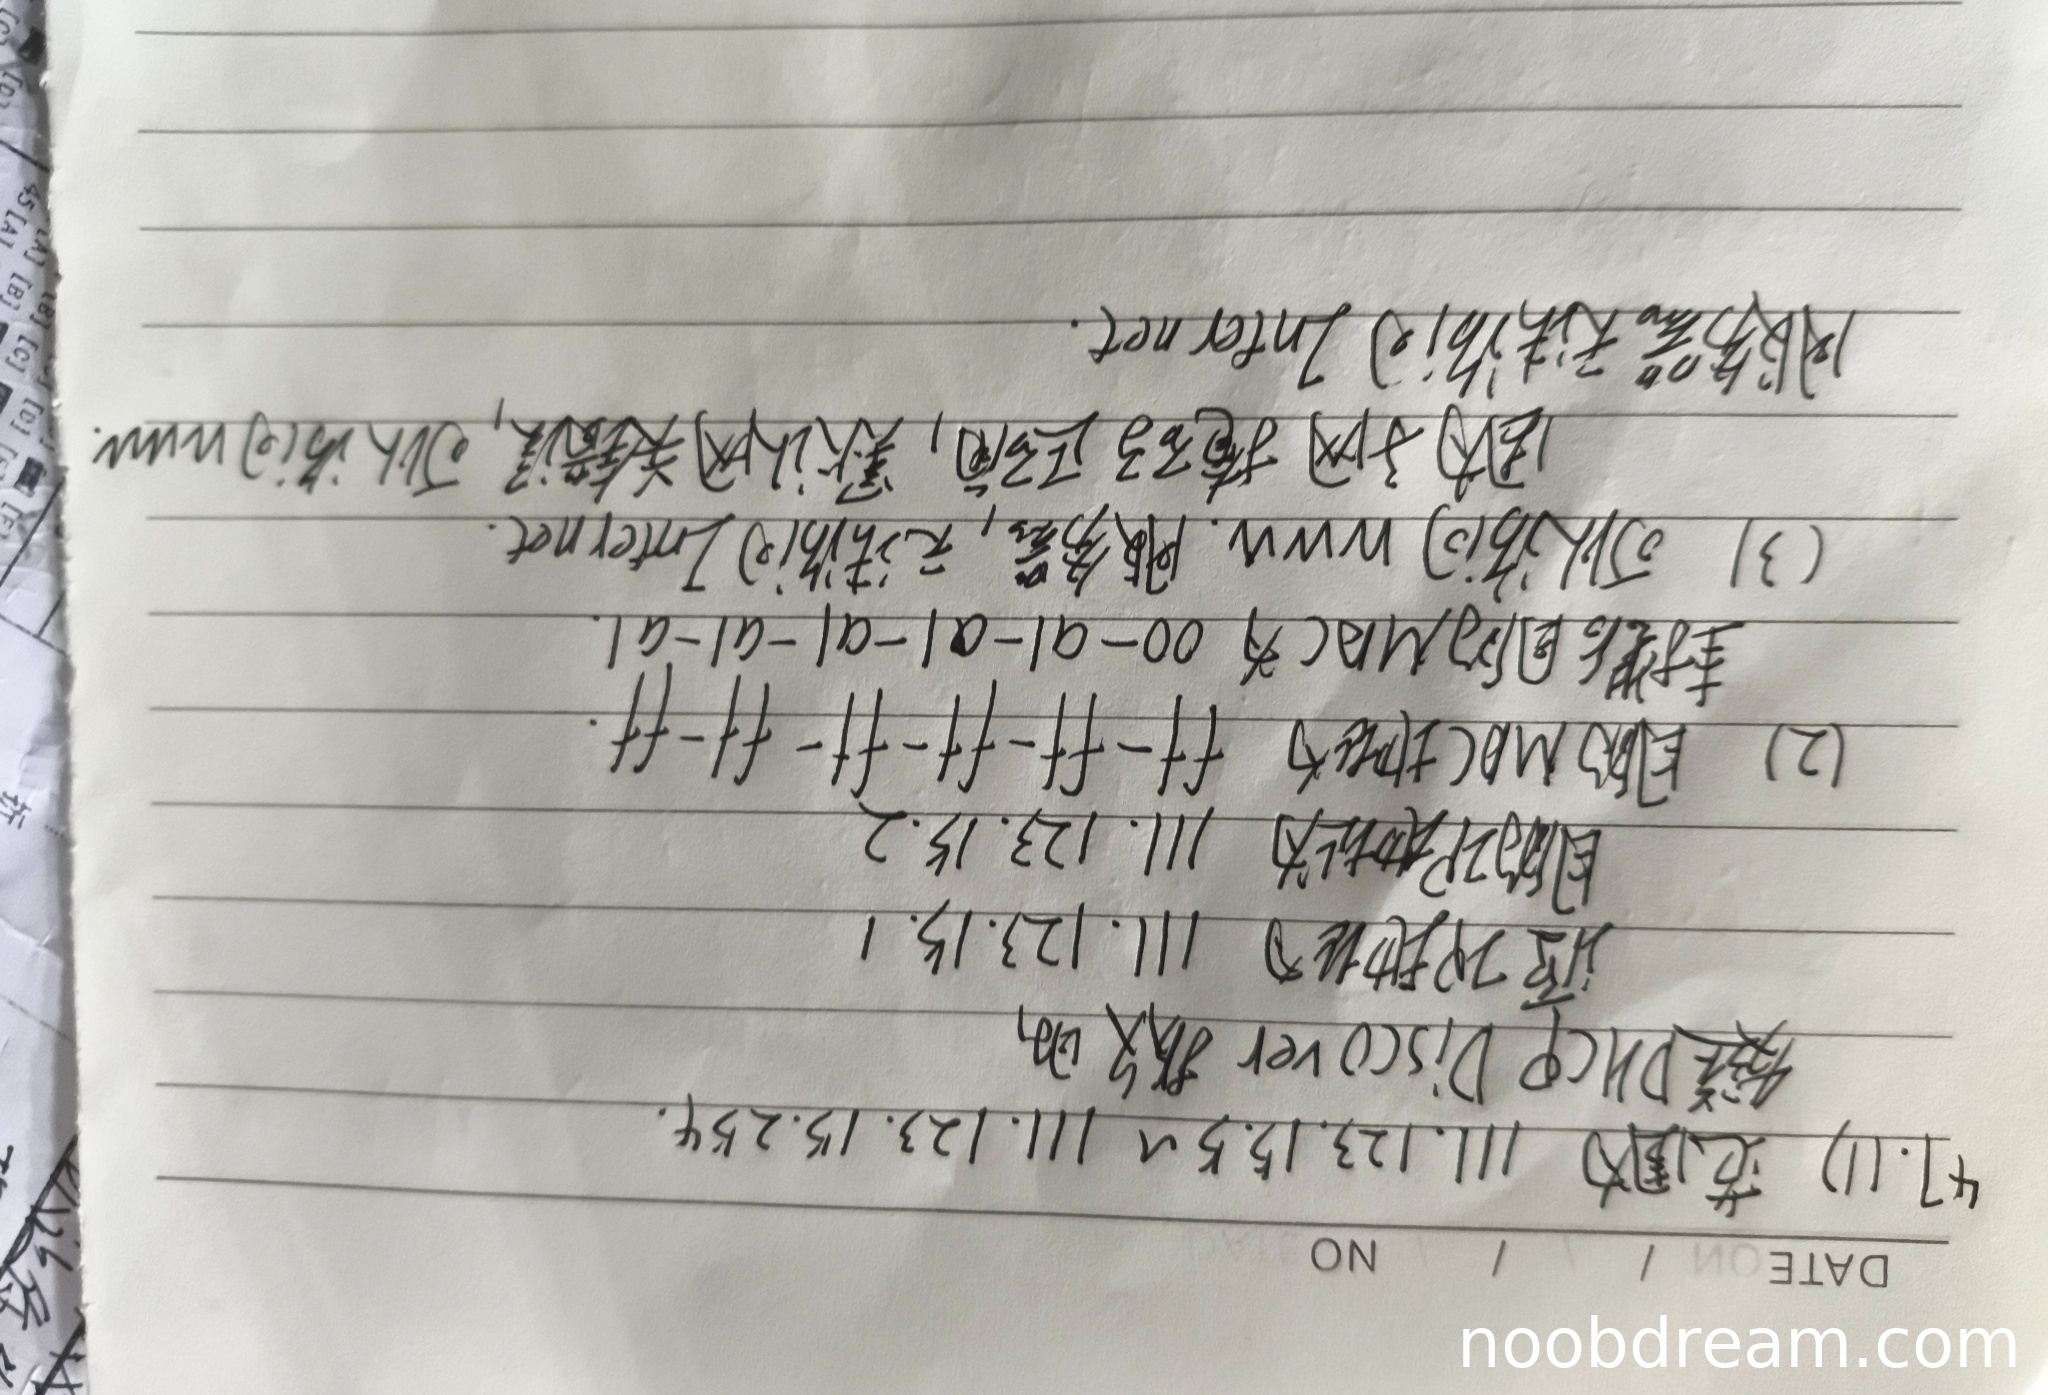 DATE / / NO
47.(1) 范围为 111.123.15.5~111.123.15.254.
发送DHCP Discover 报文时,
源IP地址为 111.123.15.1
目的IP地址为 111.123.15.2
(2) 目的MAC地址为 ff-ff-ff-ff-ff-ff.
封装后目的MAC为 00-a1-a1-a1-a1-a1.
(3) 可以访问 www. 服务器, 无法访问 Internet.
因为子网掩码正确, 默认网关错误, 可以访问www.
服务器无法访问 Internet.
45 [A] [B] [C] [D]
noobdream.com